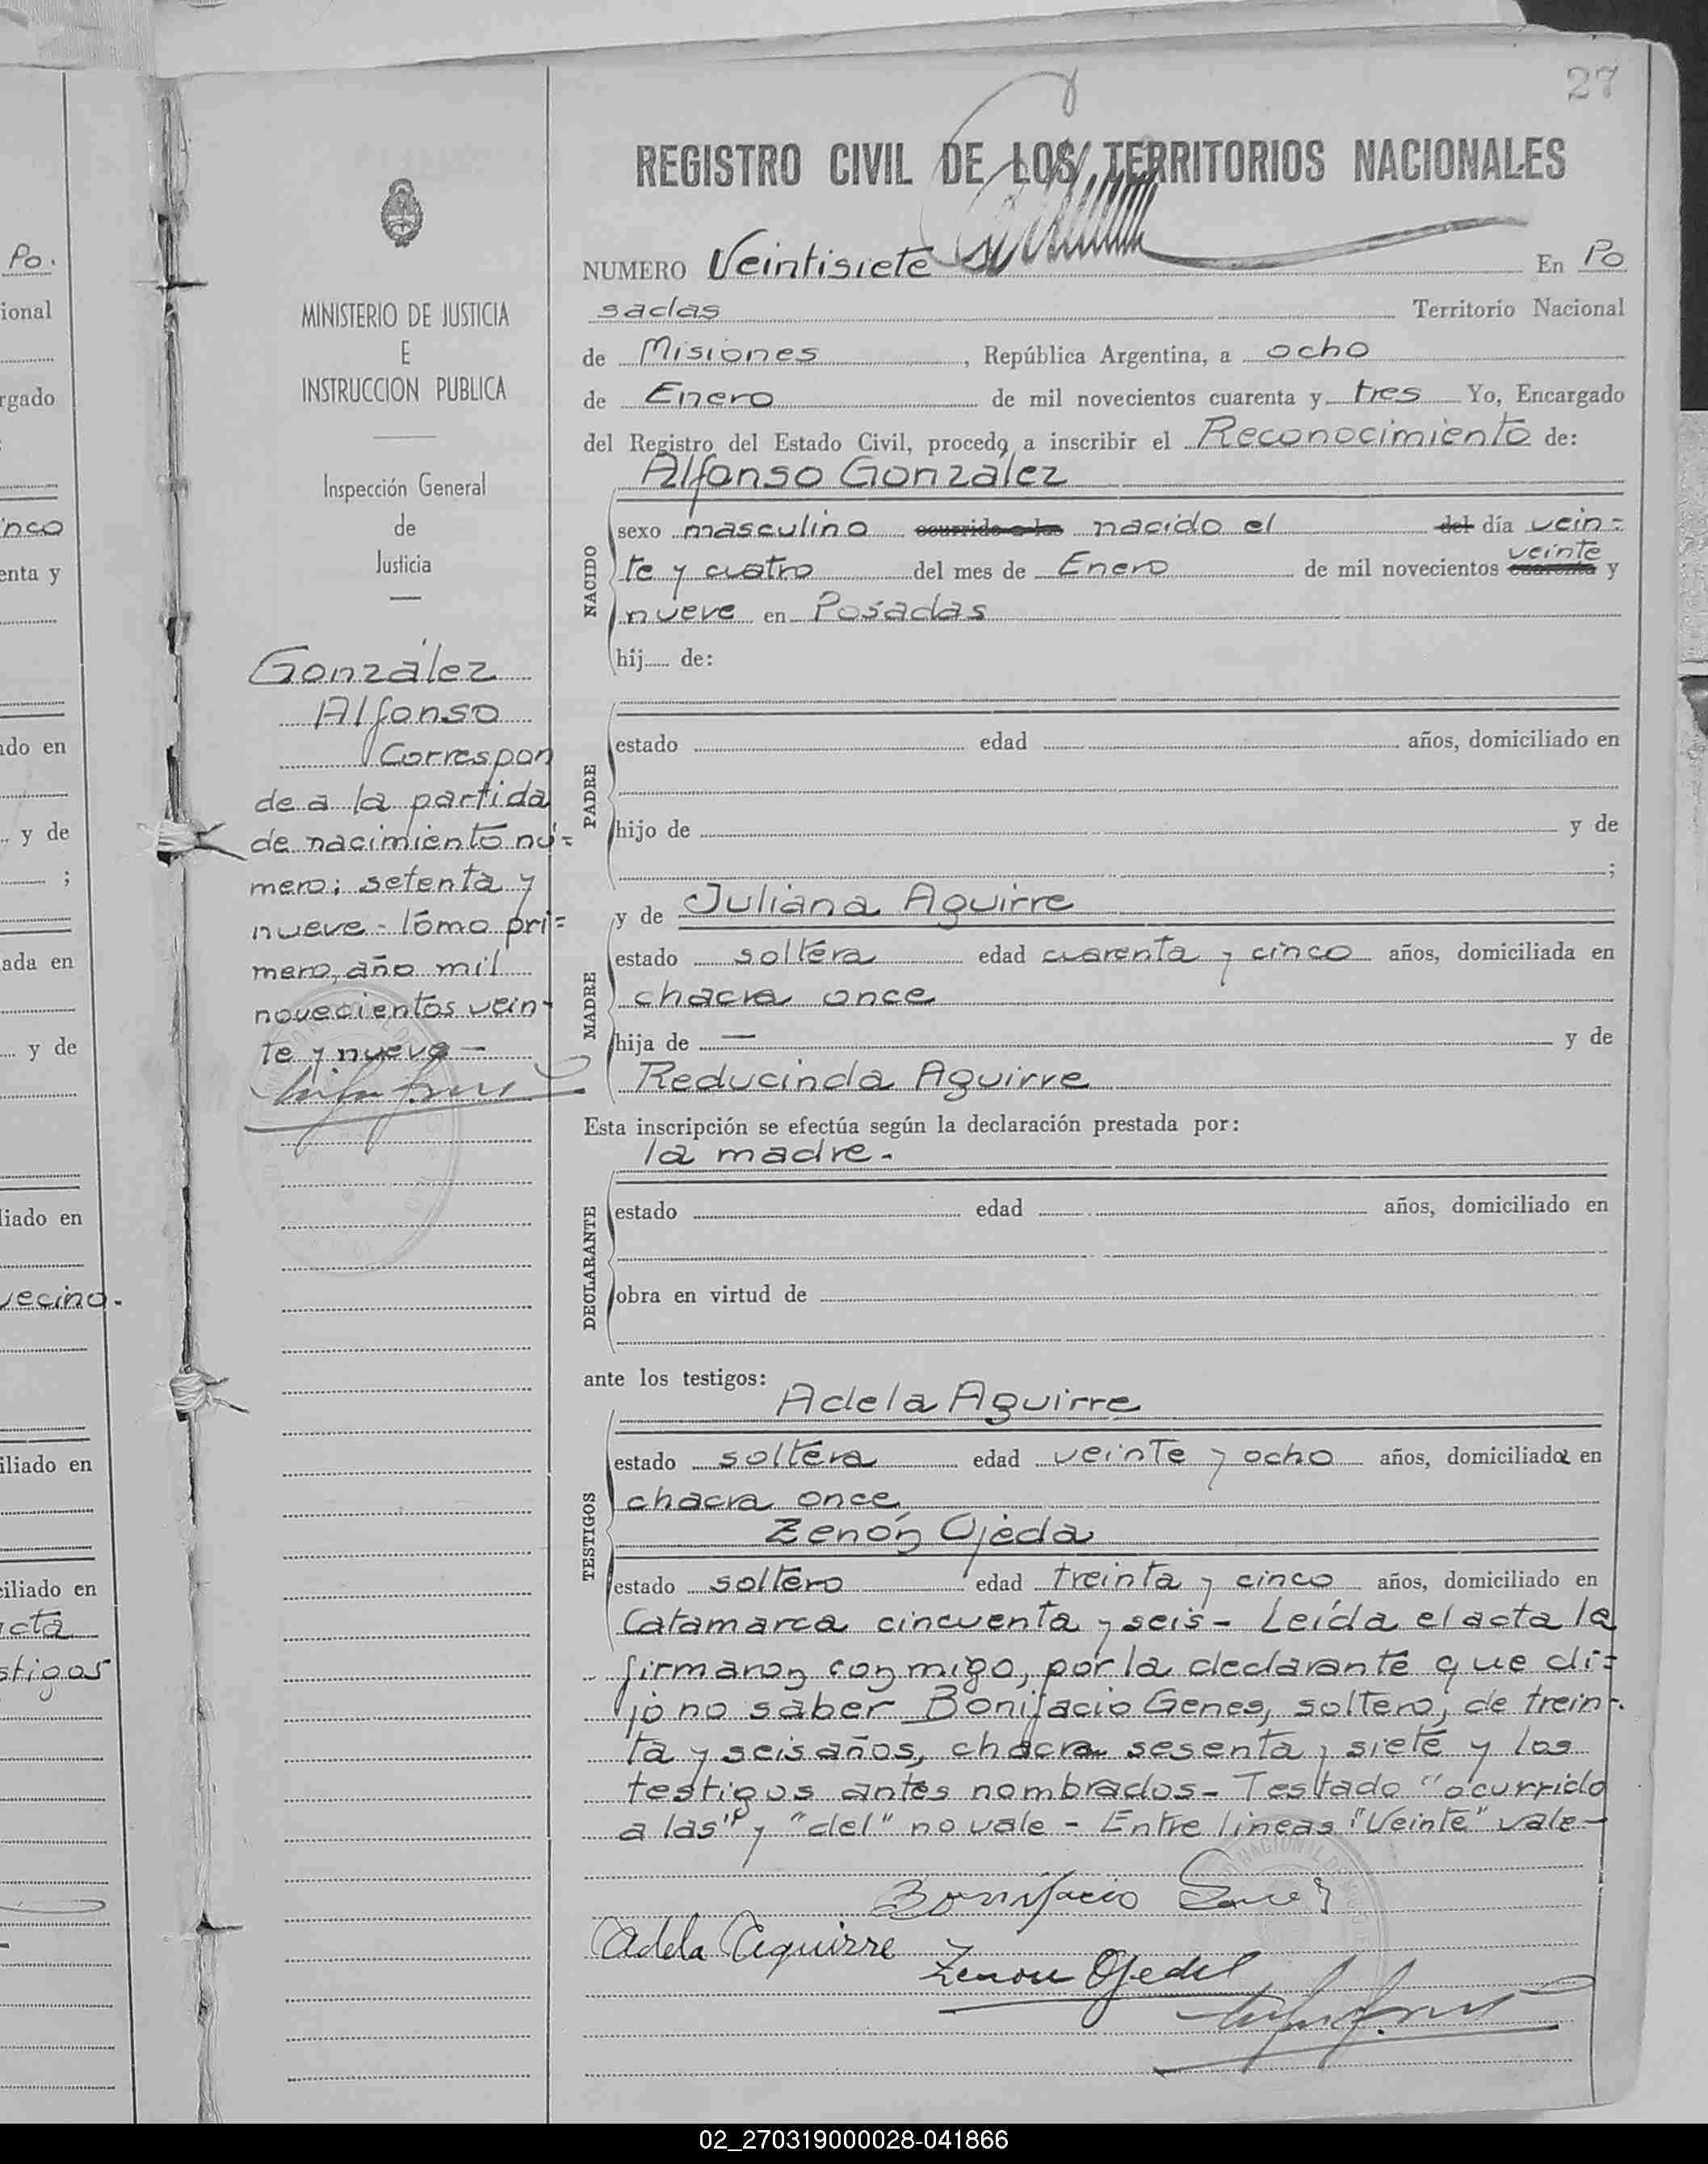 27
REGISTRO CIVIL DE LOS TERRITORIOS NACIONALES
NUMERO Veintisiete En Po
sadas Territorio Nacional
de Misiones, República Argentina, a ocho
de Enero de mil novecientos cuarenta y tres Yo, Encargado
del Registro del Estado Civil, procedo a inscribir el Reconocimiento de:
Alfonso González
NACIDO
sexo masculino ocurrido a las nacido el del día vein=
veinte
te y cuatro del mes de Enero de mil novecientos cuarenta y
nueve en Posadas
hij de:
PADRE
estado edad años, domiciliado en
hijo de y de
;
MADRE
y de Juliana Aguirre
estado soltera edad cuarenta y cinco años, domiciliada en
chacra once
hija de — y de
Reducinda Aguirre
Esta inscripción se efectúa según la declaración prestada por:
la madre.
DECLARANTE
estado edad años, domiciliado en
obra en virtud de
ante los testigos:
TESTIGOS
Adela Aguirre
estado soltera edad veinte y ocho años, domiciliada en
chacra once
Zenón Ojeda
estado soltero edad treinta y cinco años, domiciliado en
Catamarca cincuenta y seis - Leída el acta la
firmaron conmigo, por la declarante que di=
jo no saber Bonifacio Genes, soltero, de trein-
ta y seis años, chacra sesenta y siete y los
testigos antes nombrados - Testado "ocurrido
a las" y "del" no vale - Entre lineas "Veinte" vale -
Bonifacio
Adela Aguirre
Zenon Ojeda
MINISTERIO DE JUSTICIA
E
INSTRUCCION PUBLICA
Inspección General
de
Justicia
González
Alfonso
Correspon
de a la partida
de nacimiento nú=
mero: setenta y
nueve - tomo pri=
mero, año mil
novecientos vein-
te y nueve -
Po.
ional
rgado
inco
enta y
do en
y de
;
ada en
y de
liado en
vecino.
iliado en
ciliado en
acta
stigos
02_270319000028-041866